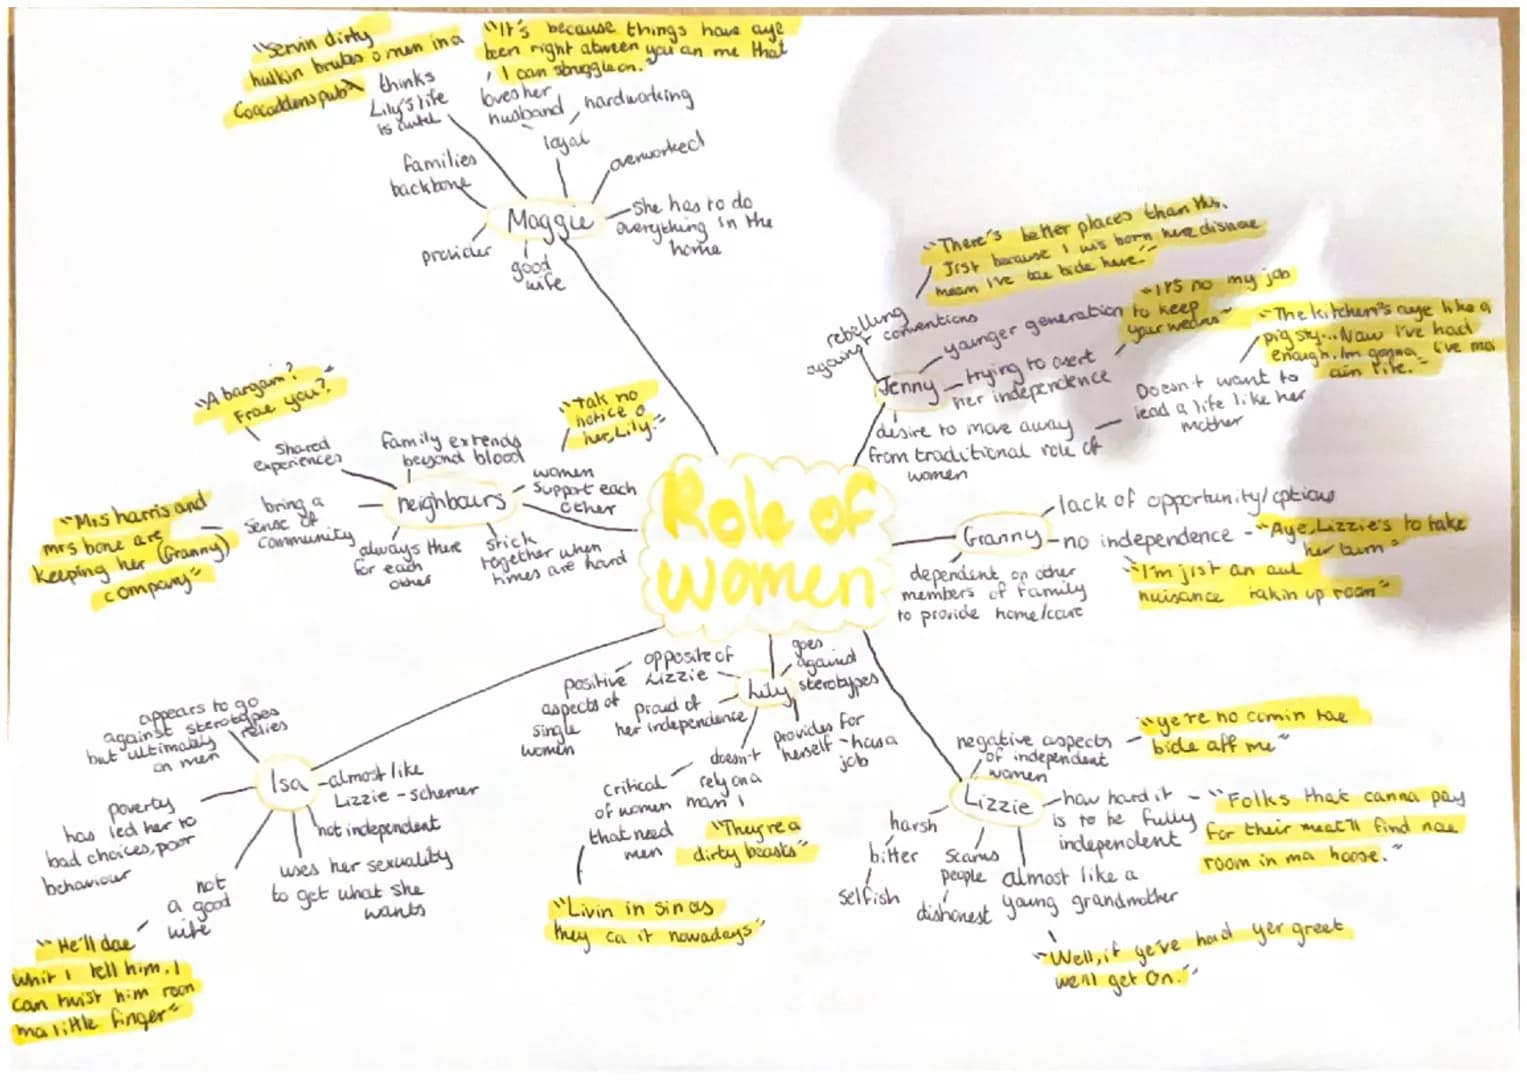 "Servin dirty
hulkin brutes o men in a
Cocaddens pub"
thinks
Lily's life
is awful
"It's because things have aye
been right atween you an me that
I can struggle on."
loves her
husband
hardworking
loyal
families
backbone
overworked
Maggie
she has to do
everything in the
home
provider
good
wife
"There's better places than this.
Jist because I wis born here disnae
mean I've tae bide here."
rebelling
against conventions
younger generation
"It's no my job
to keep
your weans"
Jenny
trying to asert
her independence
"The kitchen's aye like a
pig sty... Naw I've had
enough. Im gonna live ma
ain life."
Doesn't want to
lead a life like her
mother
desire to move away
from traditional role of
women
"A bargain?
Frae you?"
shared
experiences
family extends
beyond blood
"Tak no
notice o
her, Lily."
neighbours
women
support each
other
"Mrs harris and
mrs bone are
keeping her (Granny)
company"
bring a
sense of
community
always there
for each
other
stick
together when
times are hard
Role of
women
Granny
lack of opportunity/options
no independence - "Aye, Lizzie's to take
her turn"
dependent on other
members of family
to provide home/care
"I'm jist an aul
nuisance takin up room"
opposite of
Lizzie
positive
aspects of
single
women
goes
against
sterotypes
Lily
proud of
her independence
provides for
herself - has a
job
doesn't
rely on a
man
critical
of women
that need
men
"They're a
dirty beasts"
"Livin in sin as
they ca it nowadays"
appears to go
against sterotypes
but ultimately relies
on men
Isa
almost like
Lizzie - schemer
not independent
poverty
has led her to
bad choices, poor
behaviour
uses her sexuality
to get what she
wants
not
a good
wife
"He'll dae
whit I tell him. I
can twist him roon
ma little finger"
negative aspects
of independent
women
"ye're no comin tae
bide aff me"
Lizzie
how hard it
is to be fully
independent
"Folks that canna pay
for their meat'll find nae
room in ma hoose."
harsh
bitter
selfish
scams
people
dishonest
almost like a
young grandmother
"Well, if ye've had yer greet
we'll get on."